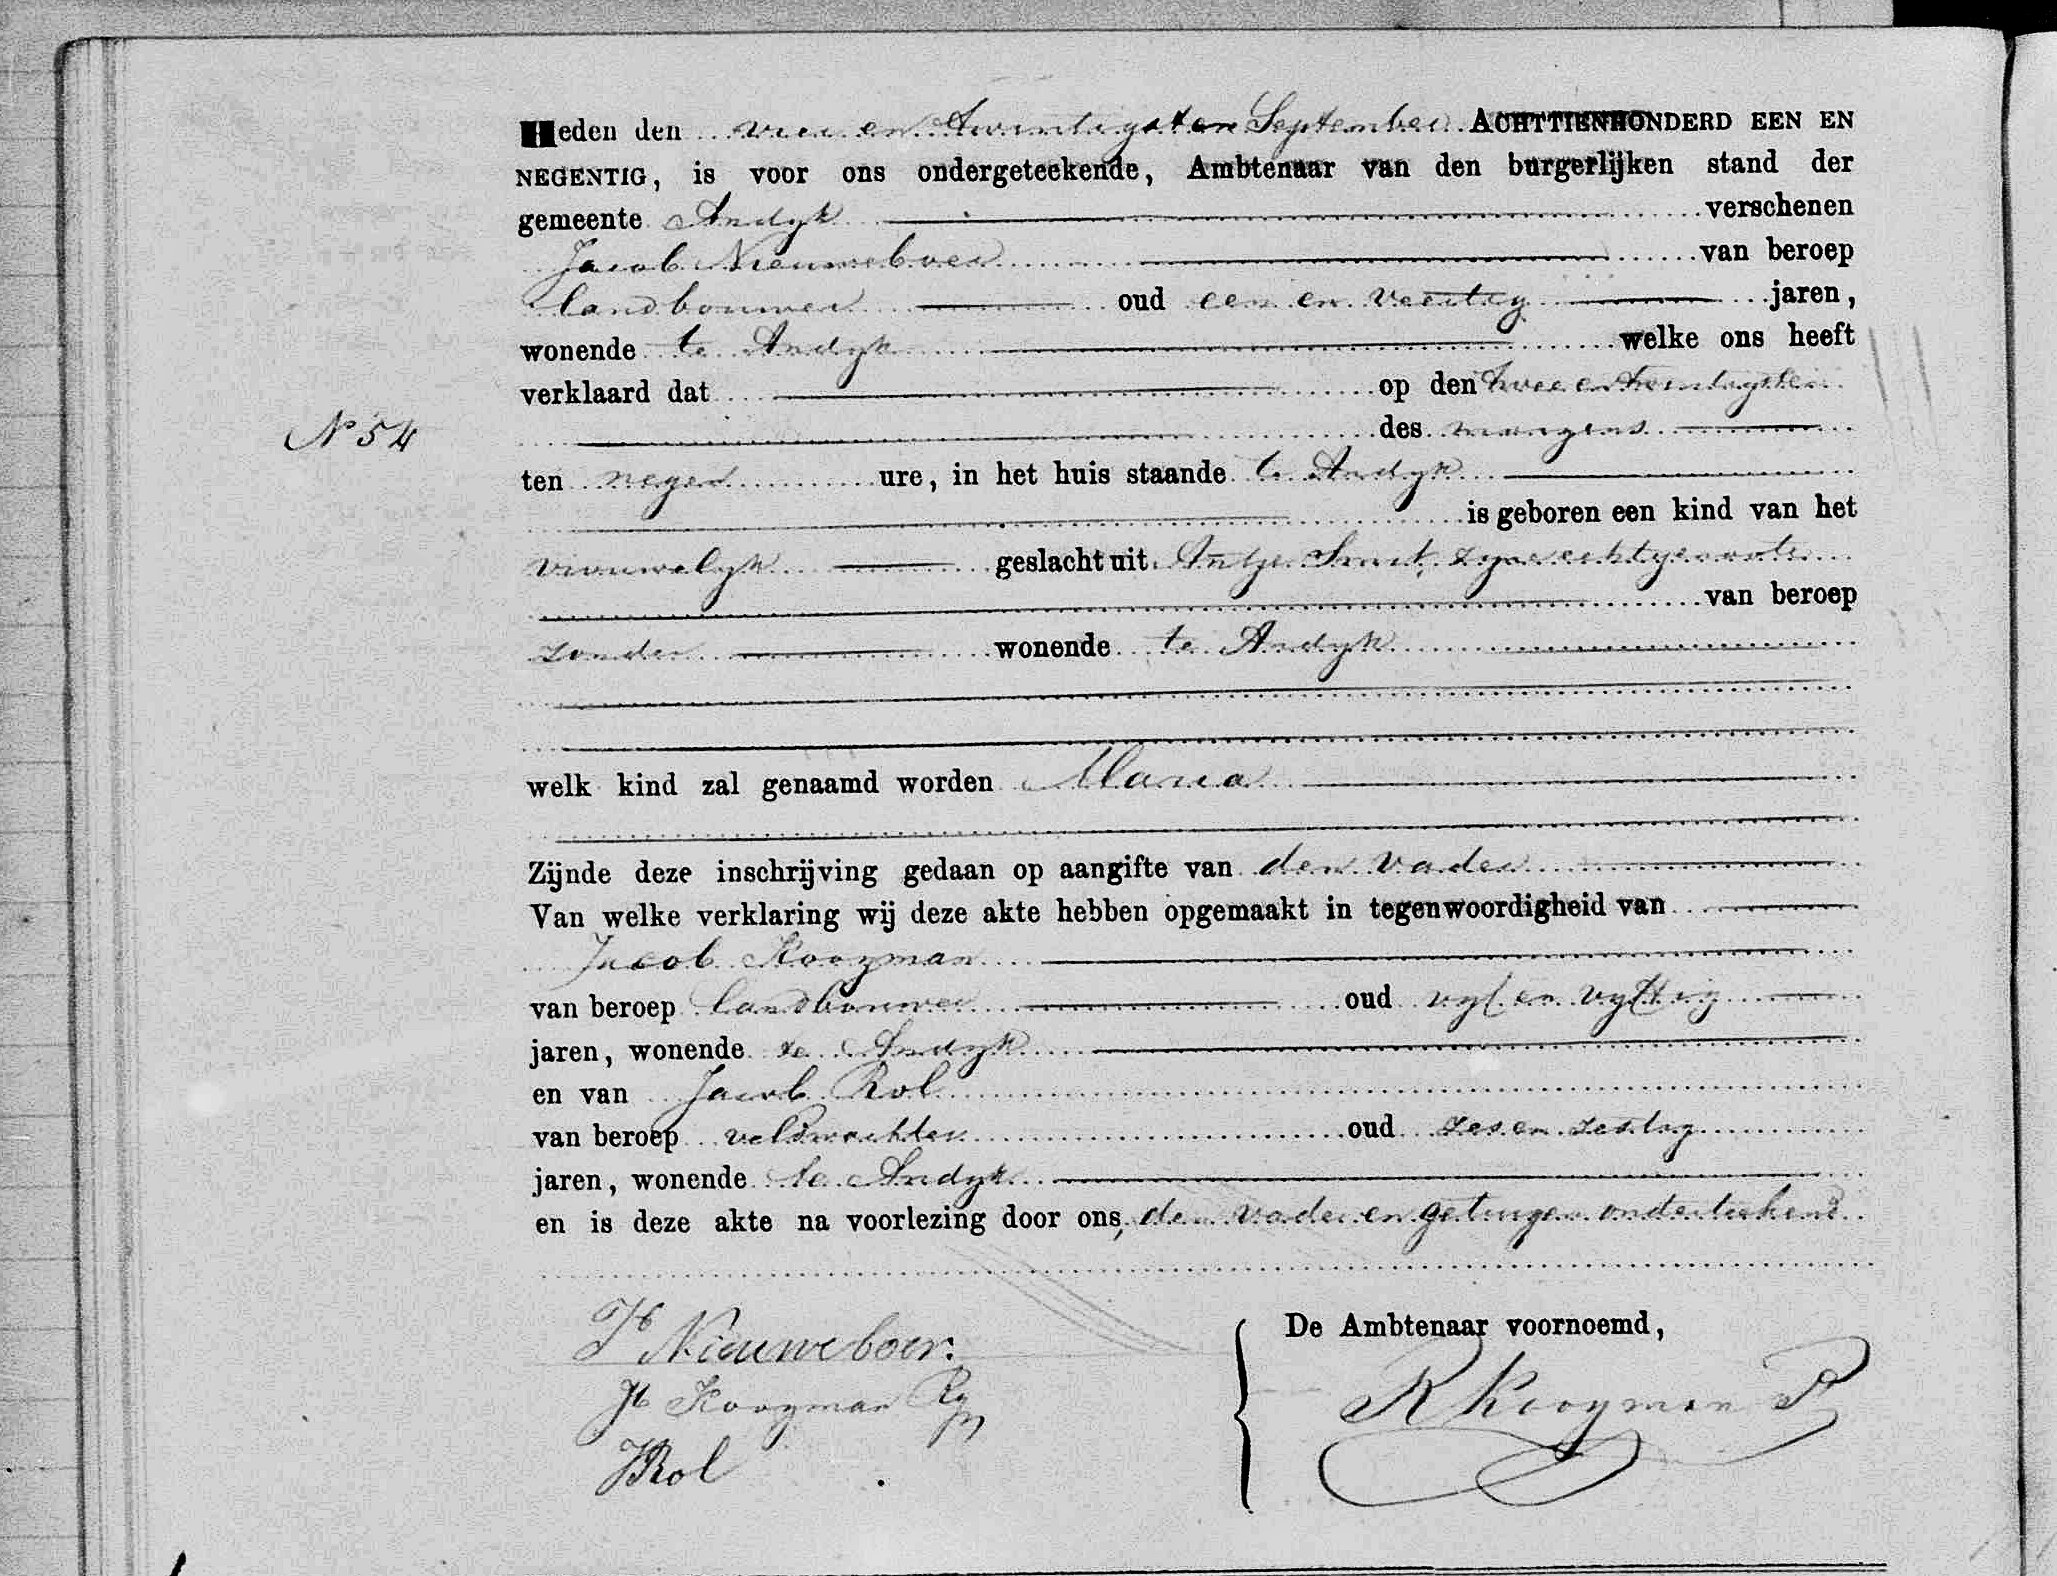 Heden den vier en twintigsten September ACHTTIENHONDERD EEN EN
NEGENTIG, is voor ons ondergeteekende, Ambtenaar van den burgerlijken stand der
gemeente Andyk verschenen
Jacob Nieuweboer van beroep
landbouwer oud een en veertig jaren,
wonende te Andyk welke ons heeft
verklaard dat op den twee en twintigsten
des morgens
N° 54
ten negen ure, in het huis staande te Andyk
is geboren een kind van het
vrouwelyk geslacht uit Antje Smit, zyne echtgenoote
van beroep
zonder wonende te Andyk
welk kind zal genaamd worden Maria
Zijnde deze inschrijving gedaan op aangifte van den vader
Van welke verklaring wij deze akte hebben opgemaakt in tegenwoordigheid van
Jacob Kooyman
van beroep landbouwer oud vyf en vyftig
jaren, wonende te Andyk
en van Jacob Rol
van beroep veldwachter oud zes en zestig
jaren, wonende te Andyk
en is deze akte na voorlezing door ons, den vader en getuigen onderteekend
De Ambtenaar voornoemd,
Jb Nieuweboer.
Jb Kooyman
R Kooyman
J Rol